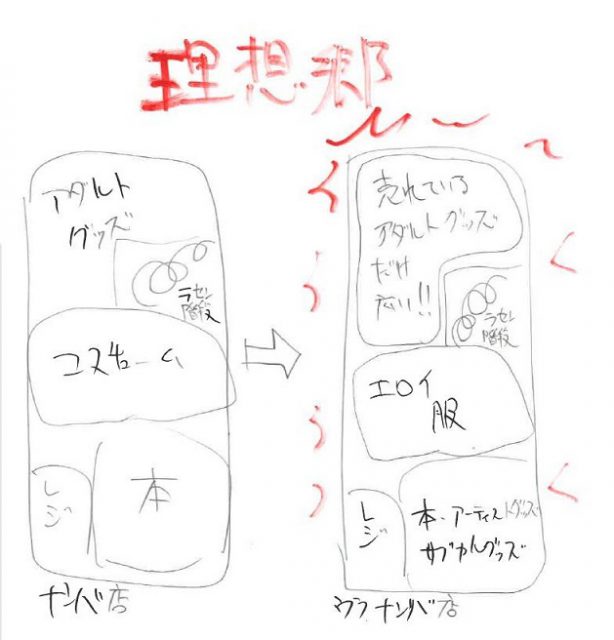 理想郷
アダルト
グッズ
ラセン
階段
コスチューム
レジ
本
ナンバ店
売れている
アダルトグッズ
だけ
広い!!
ラセン
階段
エロイ
服
レジ
本・アーティストグッズ
サブカルグッズ
ウラナンバ店